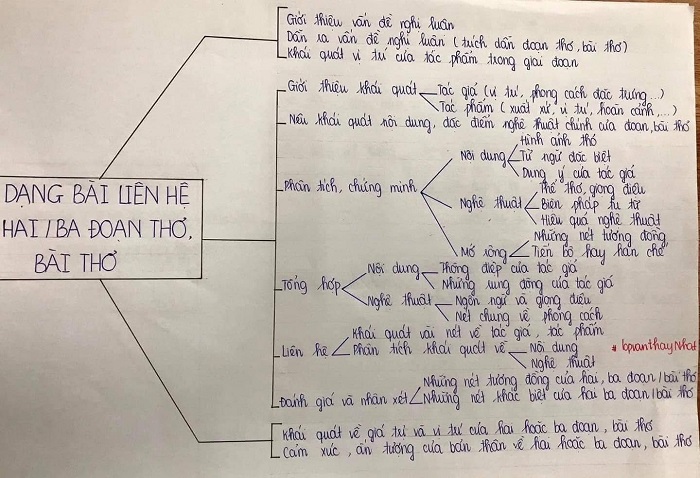 DẠNG BÀI LIÊN HỆ
HAI / BA ĐOẠN THƠ,
BÀI THƠ
Giới thiệu vấn đề nghị luận
Dẫn ra vấn đề nghị luận (trích dẫn đoạn thơ, bài thơ)
Khái quát vị trí của tác phẩm trong giai đoạn
Giới thiệu khái quát
Tác giả (vị trí, phong cách đặc trưng...)
Tác phẩm (xuất xứ, vị trí, hoàn cảnh,...)
Nêu khái quát nội dung, đặc điểm nghệ thuật chính của đoạn, bài thơ
Phân tích, chứng minh
Nội dung
Hình ảnh thơ
Từ ngữ đặc biệt
Dụng ý của tác giả
Nghệ thuật
Thể thơ, giọng điệu
Biện pháp tu từ
Hiệu quả nghệ thuật
Mở rộng
Những nét tương đồng
Tiến bộ hay hạn chế
Tổng hợp
Nội dung
Thông điệp của tác giả
Những rung động của tác giả
Nghệ thuật
Ngôn ngữ và giọng điệu
Nét chung về phong cách
Liên hệ
Khái quát vài nét về tác giả, tác phẩm
Phân tích khái quát về
Nội dung
Nghệ thuật
#topvanthayNhat
Đánh giá và nhận xét
Những nét tương đồng của hai, ba đoạn / bài thơ
Những nét khác biệt của hai ba đoạn / bài thơ
Khái quát về giá trị và vị trí của hai hoặc ba đoạn, bài thơ
Cảm xúc, ấn tượng của bản thân về hai hoặc ba đoạn, bài thơ